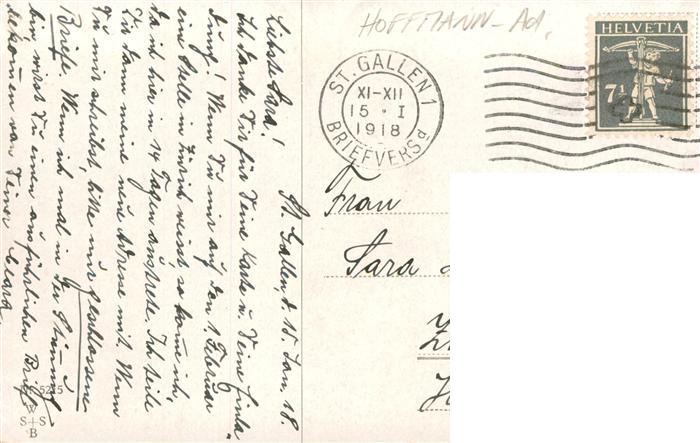 HOFFMANN-Ad.
HELVETIA
7½
ST. GALLEN 1
XI-XII
15 · I
1918
BRIEFVERSd
St. Gallen, d. 15. Jan. 18.
Liebste Sara!
Ich danke Dir für Deine Karte u. Deine Einla-
dung! Wenn Du mir auf den 1. Februar
eine Stelle in Zürich weisst, so komme ich,
da ich hier in 14 Tagen austrete. Ich teile
Dir dann meine neue Adresse mit. Wenn
Du mir schreibst, bitte nur geschlossene
Briefe. Wenn ich mal in der Stimmg
bin wirst Du einen ausführlichen Brief
bekommen von Deiner Clara.
Frau
Sara
5215
W
S+S
B